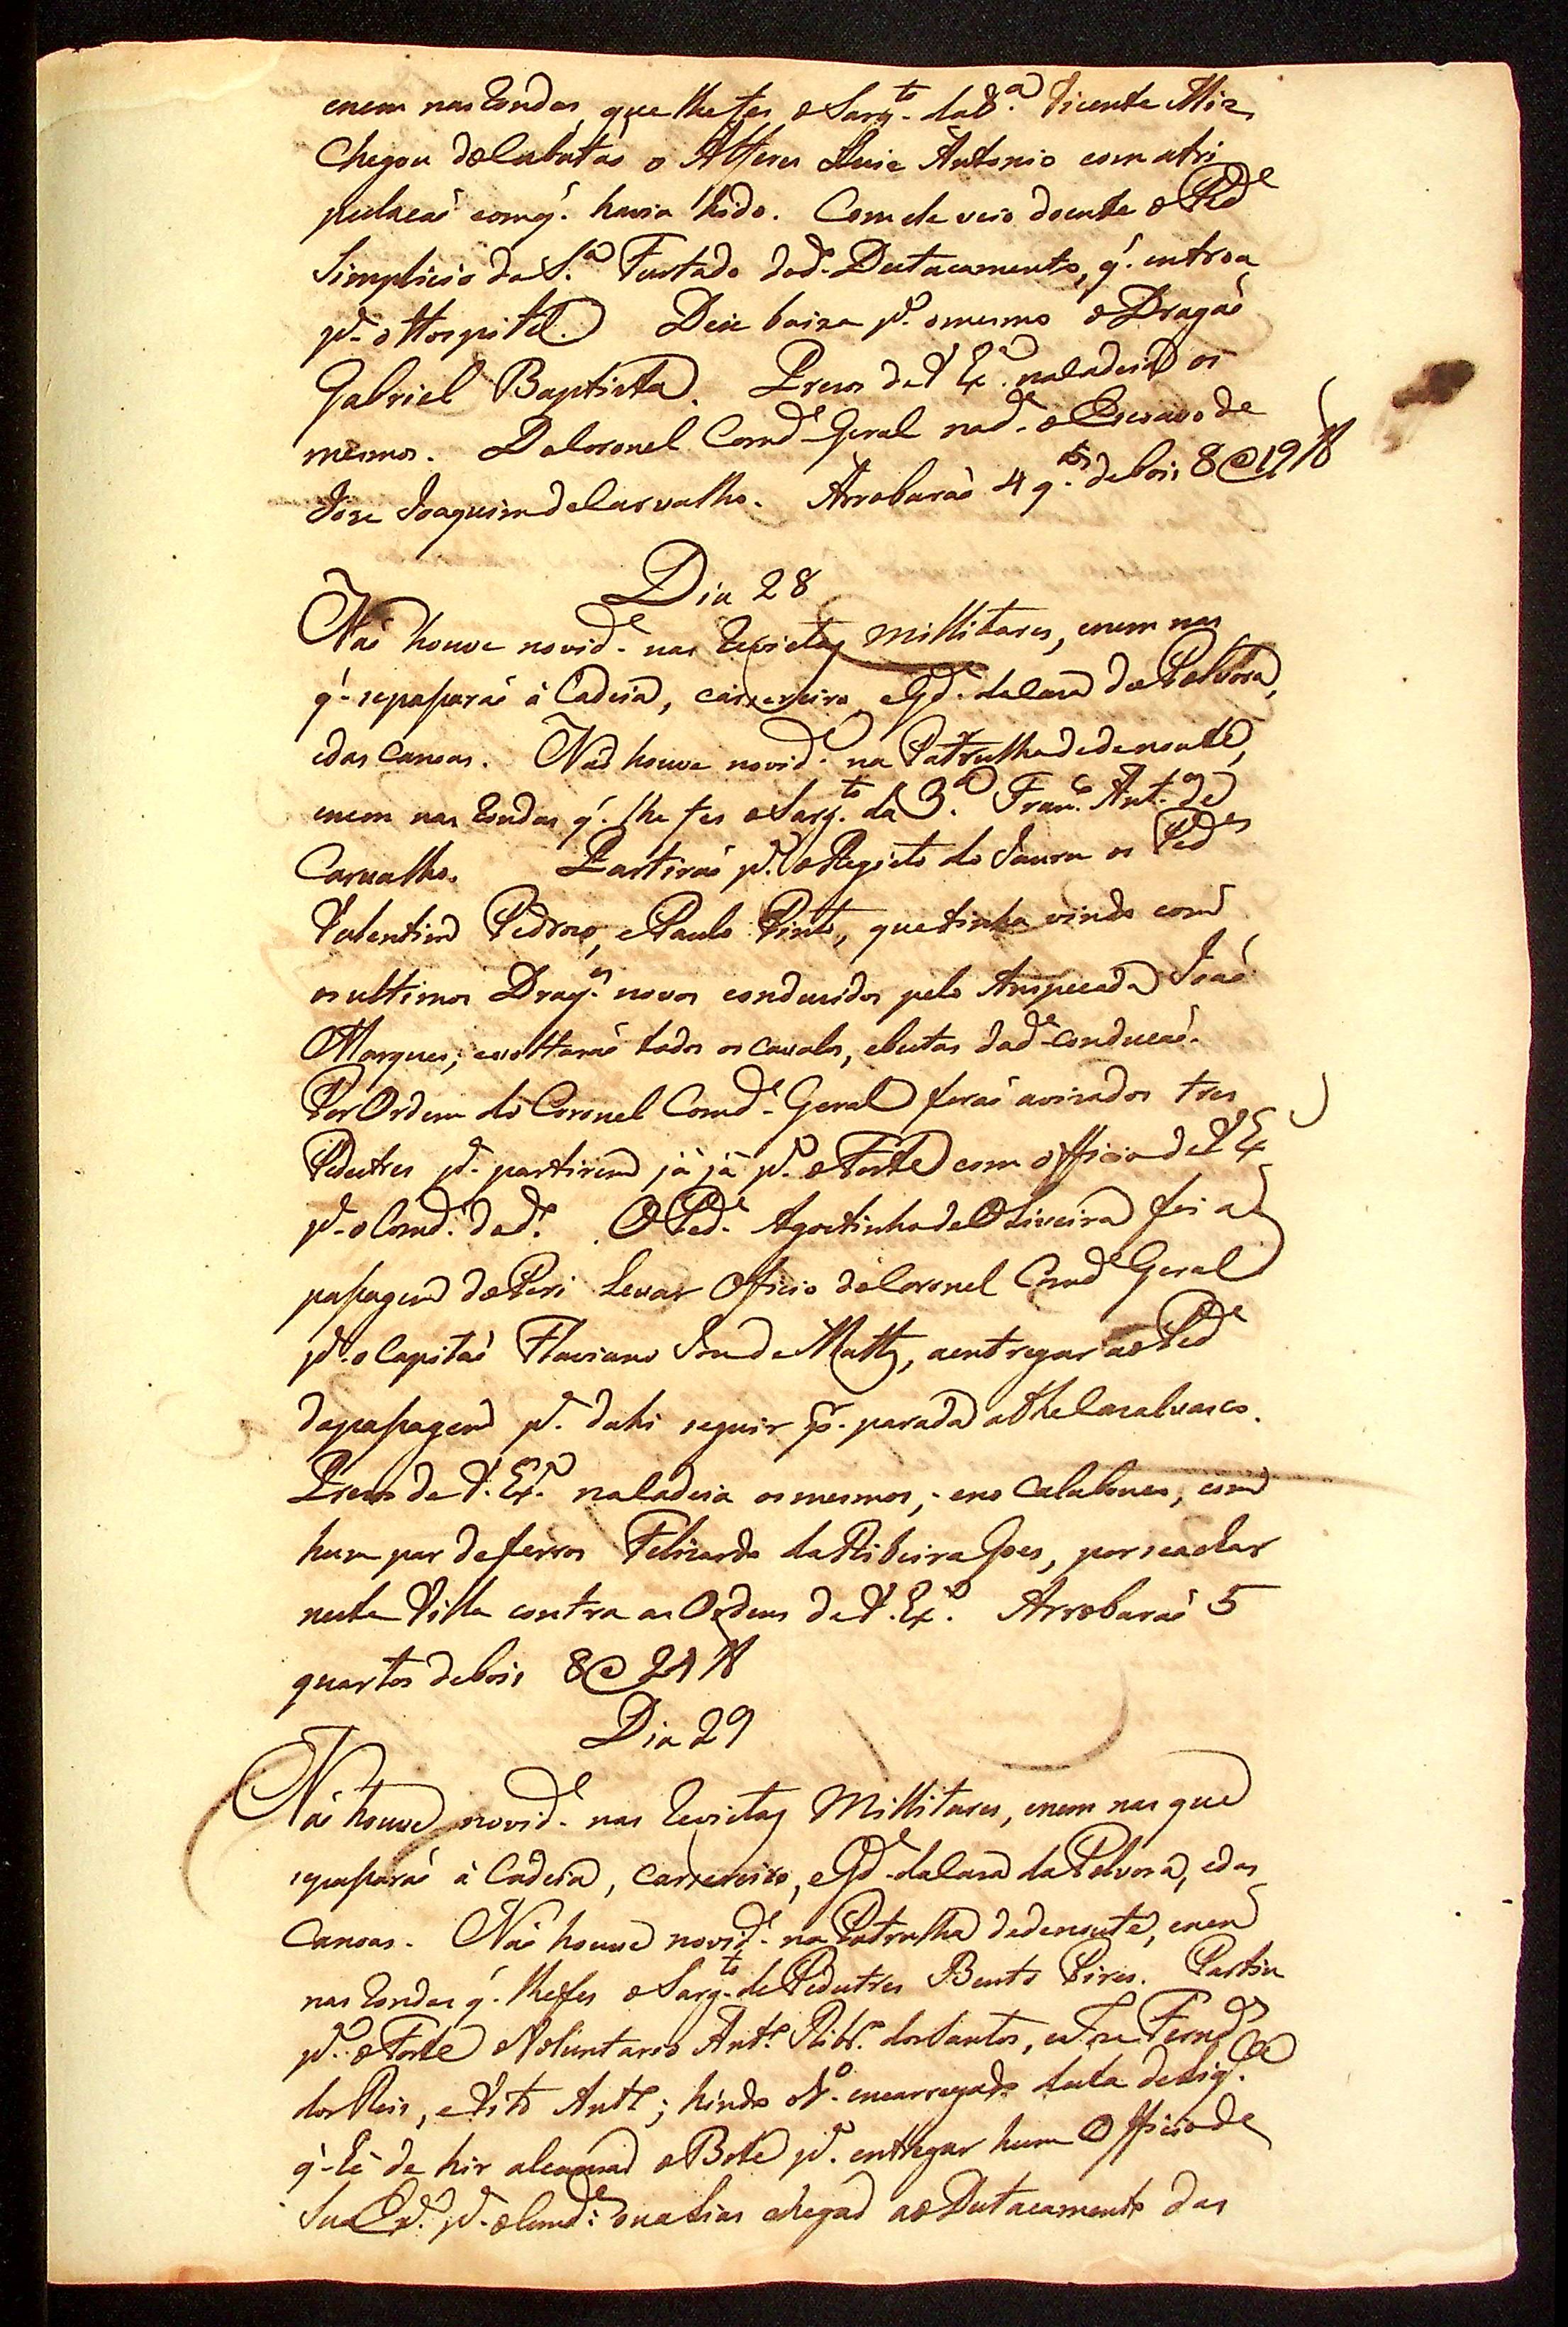 enem nas Rondas, que lhe fes o Sarg.to da d.a Vicente Miz
Chegou do Cubatão o Alferes Luis Antonio com atri
pulacaõ comq' havia hido. Com ele veio doente o Ped.e
Simplicio da S.a Furtado dod.o Destacamento, q' entrou
p.a o Hospital. Deu baixa p.a o mesmo o Dragaõ
Gabriel Baptista. Prezos de V Ex.a na Cadeia os
mesmos. Do Coronel Comd.e Geral nad.e o Escravo de
Joze Joaquim de Carvalho. Arrobaraõ 4 q.tos de bois 8 @ 19 lb
Dia 28
Naõ houve novid.e nas Revistas Millitares, enem nas
q' sepasaraõ à Cadeia, carsereiro, eGd.a da Casa da Polvora,
edas Canoas. Naõ houve novid.e na Patrulha dedenoute,
enem nas Rondas q' lhe fes o Sarg.to da 3.a Fran.co Ant.o de
Carvalho. Partiraõ p.a o Registo do Jauru os Ped.es
Valentim Pedrozo, e Paulo Pinto, que tinha vindo com
os ultimos Drag.es novos condusidos pelo Anspecada Joaõ
Marques; evoltaraõ todos os cavalos, ebestas dad.a conducaõ.
Por Ordem do Coronel Comd.e Geral foraõ avisados tres
Pedestres p.a partirem já já p.a o Forte com officio de V Ex.a
p.a o Comd.e do d.o O Ped.e Agostinho de Oliveira foi a
pasagem do Pari Levar Officio do Coronel Comd.e Geral
p.a o Capitaõ Flaviano Joze de Mattos, aentregar ao Ped.e
dapasagem p.a dahi seguir p.r parada athe Casalvasco.
Prezos de V. Ex.a na Cadeia os mesmos, eno Calabouco, com
hum par de ferros Felisardo da Ribeira Goes, por se achar
nesta Villa contra as Ordens de V. Ex.a Arrobaraõ 5
quartos de bois 8 @ 24 lb
Dia 29
Naõ houve novid.e nas Revistas Millitares, enem nas que
sepasaraõ à Cadeia, carsereiro, eGd.a da Casa da Polvora, edas
Canoas. Naõ houve novid.e na Patrulha dedenoute, enem
nas Rondas q' lhe fes o Sarg.to de Pedestres Bento Pires. Partiu
p.a o Forte o Voluntario Ant.o Rib.o dos Santos, e Joze Fern.des
dos Reis, e Vito Ant.o; hindo o V.o encarregado desta delig.ca
q' he de hir alcansar o Bote p.a entregar hum Officio de
Sua Ex.a p.a o Comd.e ou aliás chegar ao Destacamento das